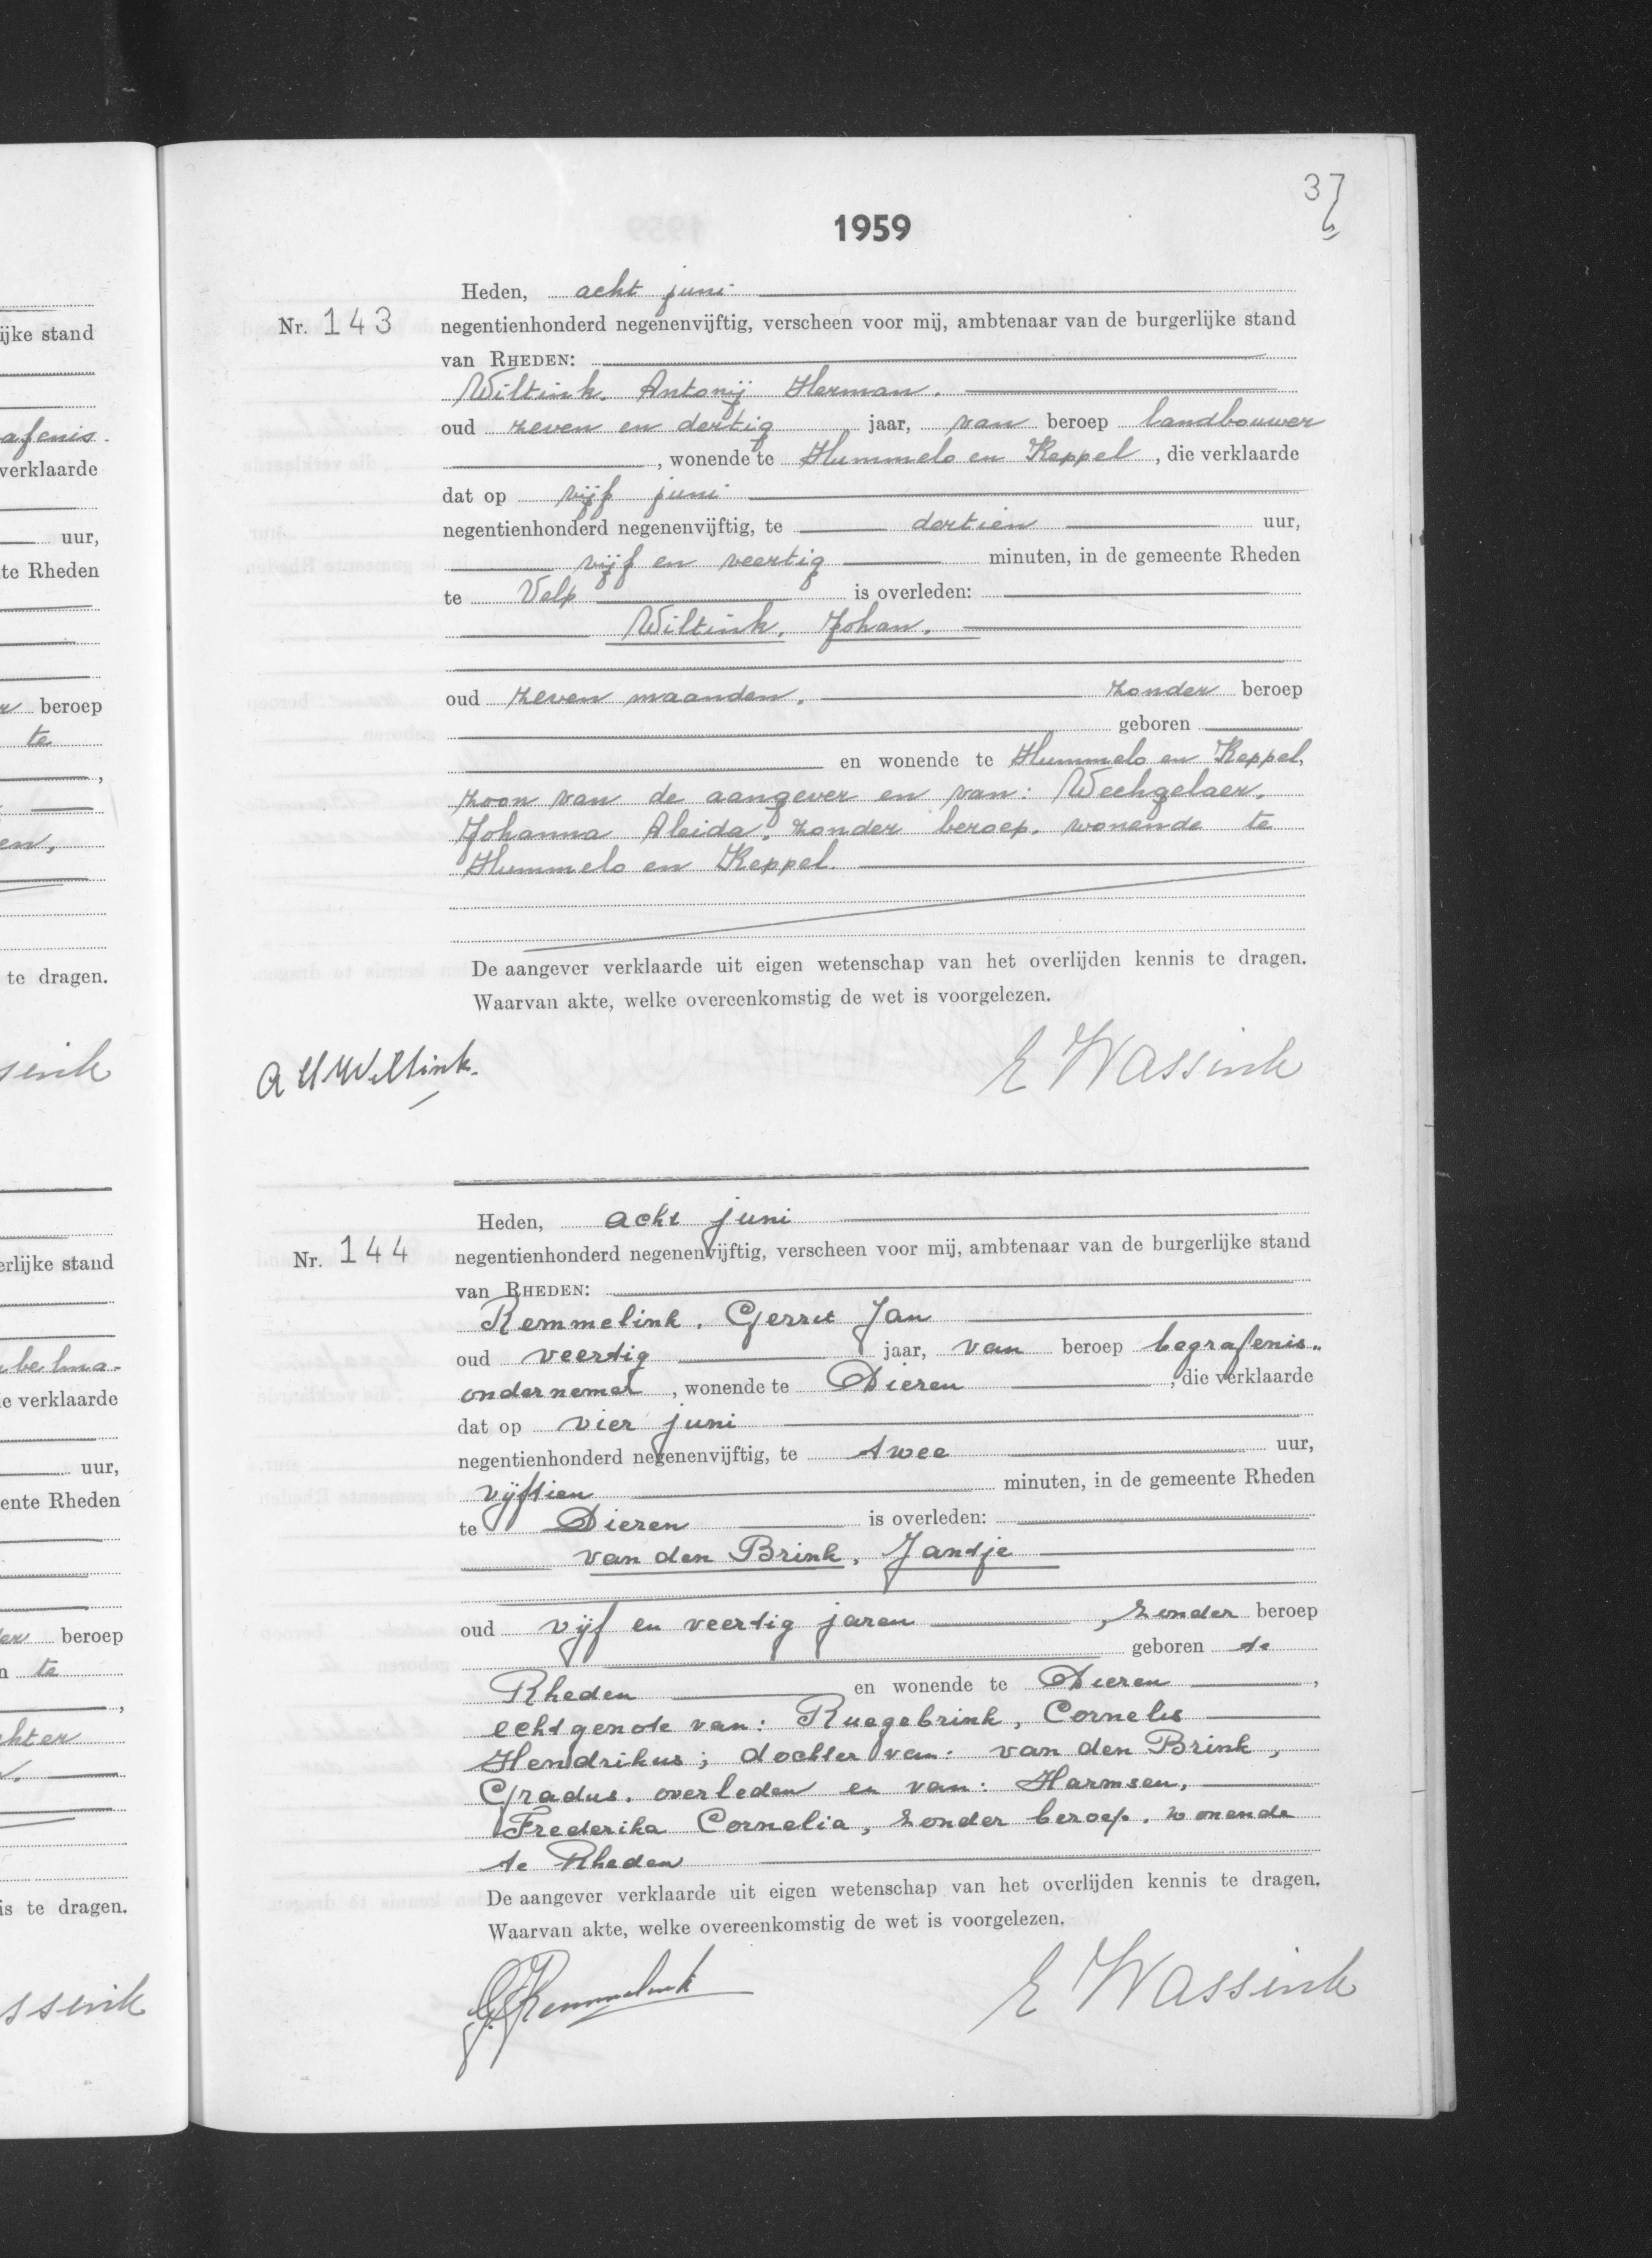 ijke stand
afenis.
verklaarde
uur,
te Rheden
beroep
te
en,
te dragen.
erlijke stand
e verklaarde
uur,
ente Rheden
beroep
n te
is te dragen.
37
1959
Heden, acht juni
Nr. 143 negentienhonderd negenenvijftig, verscheen voor mij, ambtenaar van de burgerlijke stand
van RHEDEN:
Wiltink. Antonij Herman.
oud zeven en dertig jaar, van beroep landbouwer
, wonende te Hummelo en Keppel, die verklaarde
dat op vijf juni
negentienhonderd negenenvijftig, te dertien uur,
vijf en veertig minuten, in de gemeente Rheden
te Velp is overleden:
Wiltink, Johan.
oud zeven maanden, zonder beroep
geboren
en wonende te Hummelo en Keppel,
zoon van de aangever en van: Wechgelaer,
Johanna Aleida, zonder beroep, wonende te
Hummelo en Keppel.
De aangever verklaarde uit eigen wetenschap van het overlijden kennis te dragen.
Waarvan akte, welke overeenkomstig de wet is voorgelezen.
A H Wiltink. E Wassink
Heden, acht juni
Nr. 144 negentienhonderd negenenvijftig, verscheen voor mij, ambtenaar van de burgerlijke stand
van RHEDEN:
Remmelink, Gerrit Jan
oud veertig jaar, van beroep begrafenis„
ondernemer, wonende te Dieren, die verklaarde
dat op vier juni
negentienhonderd negenenvijftig, te twee uur,
vijftien minuten, in de gemeente Rheden
te Dieren is overleden:
van den Brink, Jantje
oud vijf en veertig jaren, zonder beroep
geboren te
Rheden en wonende te Dieren,
echtgenote van: Ruegebrink, Cornelis
Hendrikus; dochter van: van den Brink,
Gradus, overleden en van: Harmsen,
Frederika Cornelia, zonder beroep, wonende
te Rheden
De aangever verklaarde uit eigen wetenschap van het overlijden kennis te dragen.
Waarvan akte, welke overeenkomstig de wet is voorgelezen.
G.J. Remmelink E Wassink